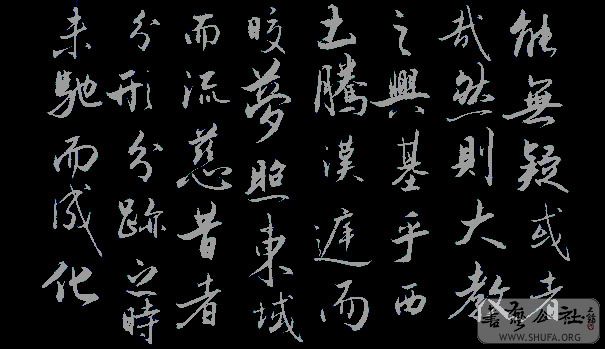 能無疑或者
哉然則大教
之興基乎西
土騰漢庭而
晈夢照東域
而流慈昔者
分形分跡之時
未馳而成化
公社
WWW.SHUFA.ORG